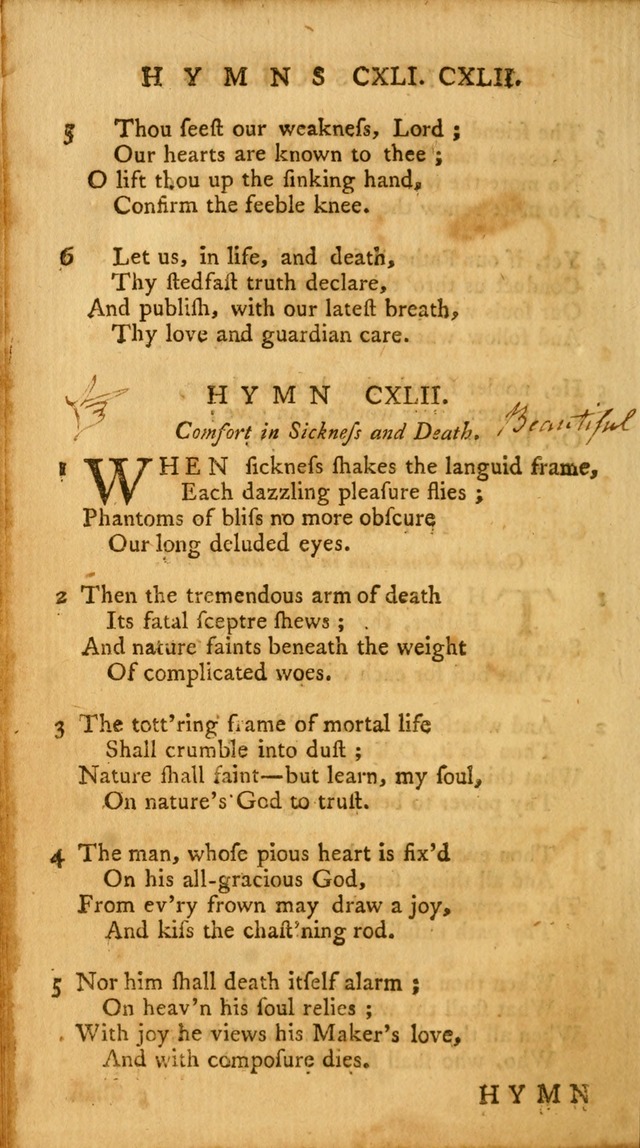 HYMNS CXLI. CXLII.
5 Thou ſeeſt our weakneſs, Lord ;
Our hearts are known to thee ;
O lift thou up the ſinking hand,
Confirm the feeble knee.
6 Let us, in life, and death,
Thy ſtedfaſt truth declare,
And publiſh, with our lateſt breath,
Thy love and guardian care.
HYMN CXLII.
Comfort in Sickneſs and Death. Beautiful
1 WHEN ſickneſs ſhakes the languid frame,
Each dazzling pleaſure flies ;
Phantoms of bliſs no more obſcure
Our long deluded eyes.
2 Then the tremendous arm of death
Its fatal ſceptre ſhews ;
And nature faints beneath the weight
Of complicated woes.
3 The tott'ring frame of mortal life
Shall crumble into duſt ;
Nature ſhall faint—but learn, my ſoul,
On nature's God to truſt.
4 The man, whoſe pious heart is fix'd
On his all-gracious God,
From ev'ry frown may draw a joy,
And kiſs the chaſt'ning rod.
5 Nor him ſhall death itſelf alarm ;
On heav'n his ſoul relies ;
With joy he views his Maker's love,
And with compoſure dies.
HYMN